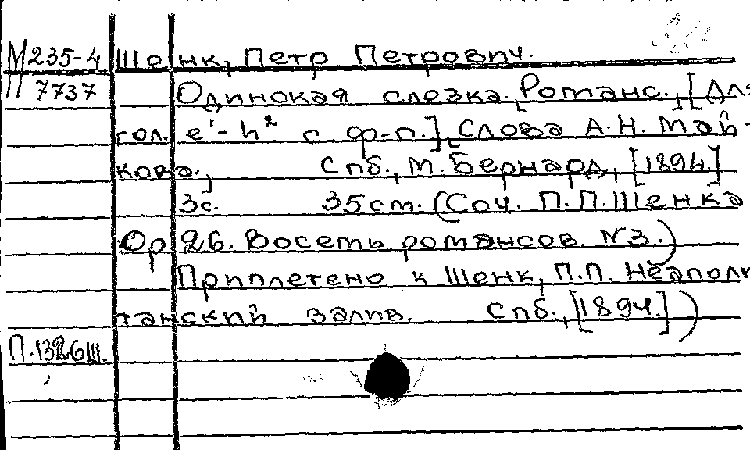 М 235-4 Шенк, Петр Петрович.
П 7737 Одинокая слезка. Романс. [Для
гол. e'-h² с ф-п.] Слова А.Н. Май-
кова. Спб., М. Бернард, [1894.]
3с. 35см. (Соч. П.П. Шенка
Op 26. Восемь романсов. N3.)
Приплетено к Шенк, П.П. Неаполи
танский залив. Спб., [1894.])
П.1326Ш.